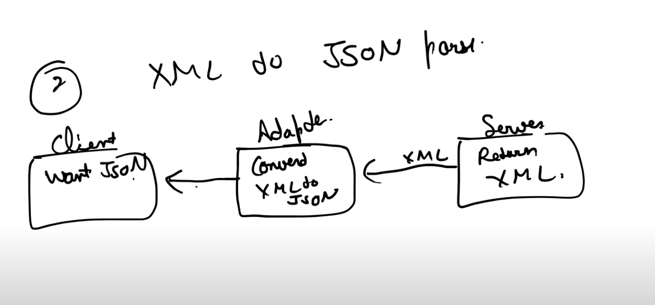 2
XML to JSON parse.
Client
Want JSON
Adapter.
Convert
XML to
JSON
XML
Server
Return
XML.